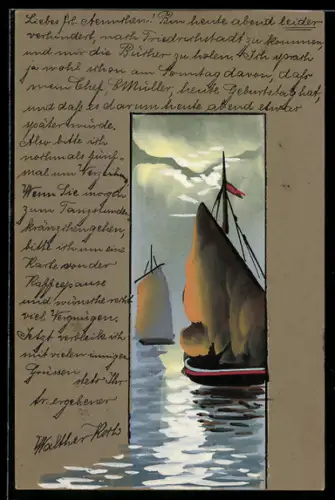 Liebes Frl. Aennchen! Bin heute abend leider
verhindert, nach Friedrichstadt zu kommen,
und mir die Bücher zu holen. Ich sprach
ja wohl schon am Sonntag davon, daß
mein Chef, C. Müller, heute Geburtstag hat,
und daß es darum heute abend etwas
später würde.
Also bitte ich
nochmals fünf-
mal um Verzeih.
Wenn Sie morgen
zum Tanzstunde
kränzchen gehen,
bitte ich um eine
Karte von der
Kaffeepause
und wünsche recht
viel Vergnügen.
Jetzt verbleibe ich
mit vielen innigen
Grüssen
stets Ihr
tr. ergebener
Walther Roth